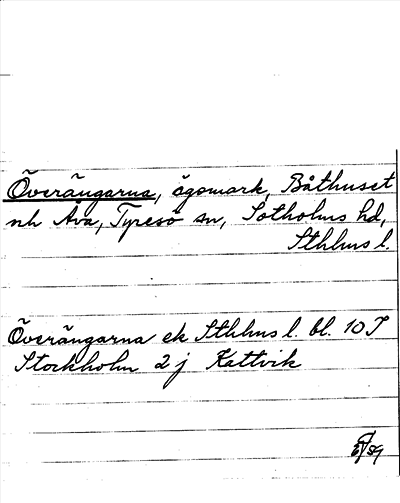 Överängarna, ägomark, Båthuset
nh Åva, Tyresö sn, Sotholms hd,
Sthlms l.
Överängarna ek Sthlms l. bl. 10 J
Stockholm 2 j Kattvik